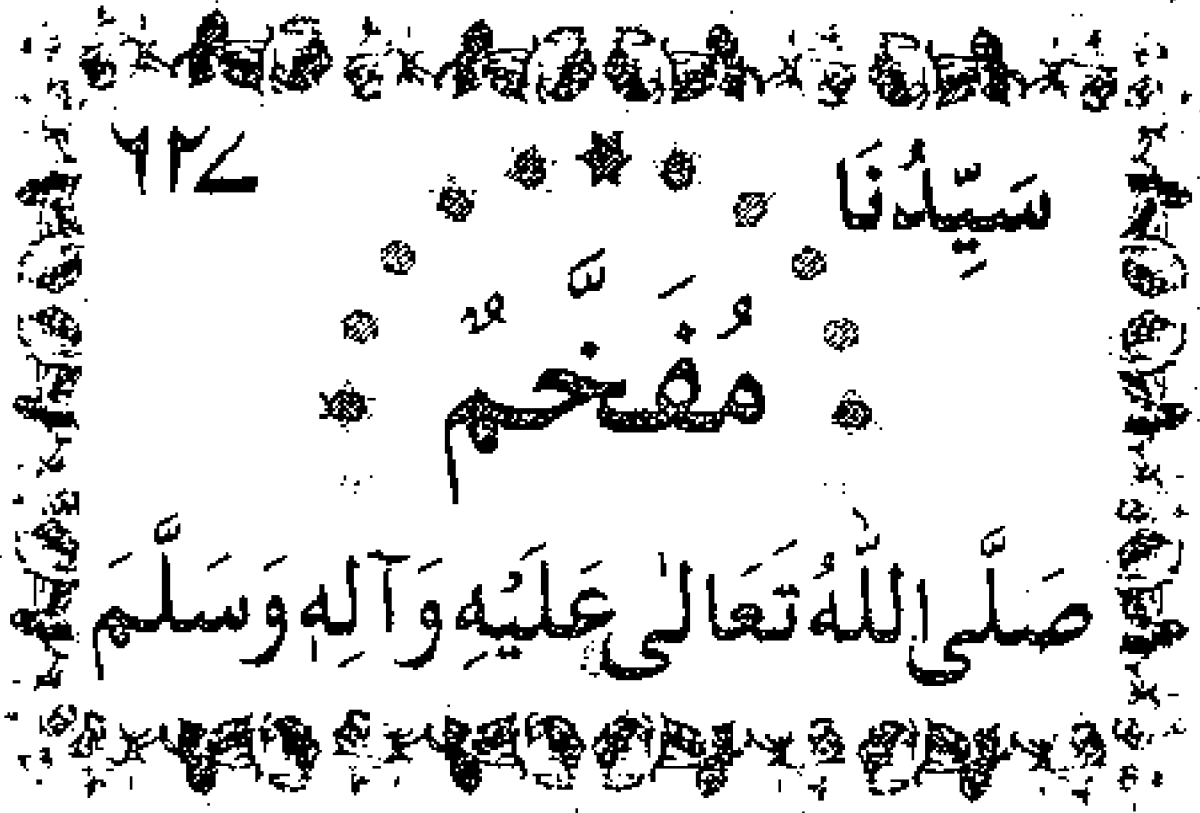 سَيِّدُنَا ۶۲۷
مُفَخَّمٌ
صَلَّى اللّٰهُ تَعَالٰى عَلَيْهِ وَآلِهٖ وَسَلَّمَ